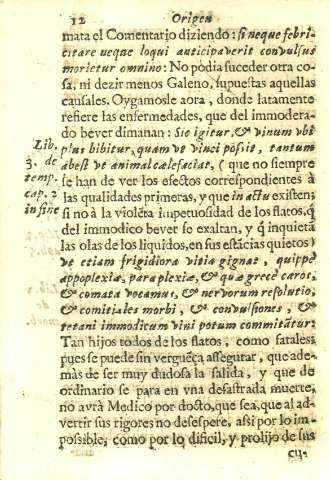 12 Origen
mata el Comentario diziendo: si neque febri-
citare neque loqui anticipaverit convulsus
morietur omnino: No podia suceder otra co-
sa, ni dezir menos Galeno, supuestas aquellas
causales. Oygamosle aora, donde latamente
refiere las enfermedades, que del immodera-
do bever dimanan: Sic igitur, & vinum ubi
Lib.
plus bibitur, quam ut vinci possit, tantum
3. de
abest ut animal calefaciat, (que no siempre
temp.
se han de ver los efectos correspondientes à
cap. 2
las qualidades primeras, y que in actu existen;
in fine
si no à la violēta impetuosidad de los flatos, q̄
del immodico bever se exaltan, y q̄ inquieta
las olas de los liquidos, en sus estācias quietos)
ut etiam frigidiora vitia gignat, quippè
appoplexiæ, paraplexiæ, & quæ grecè caros,
& comata vocamus, & nervorum resolutio,
& comitiales morbi, & convulsiones, &
tetani immodicum vini potum commitātur:
Tan hijos todos de los flatos, como fatales;
pues se puede sin verguēça assegurar, que ade-
màs de ser muy dudosa la salida, y que de
ordinario se para en vna desastrada muerte,
no avrà Medico por docto, que sea, que al ad-
vertir sus rigores no desespere, assi por lo im-
possible, como por lo dificil, y prolijo de sus
cu-